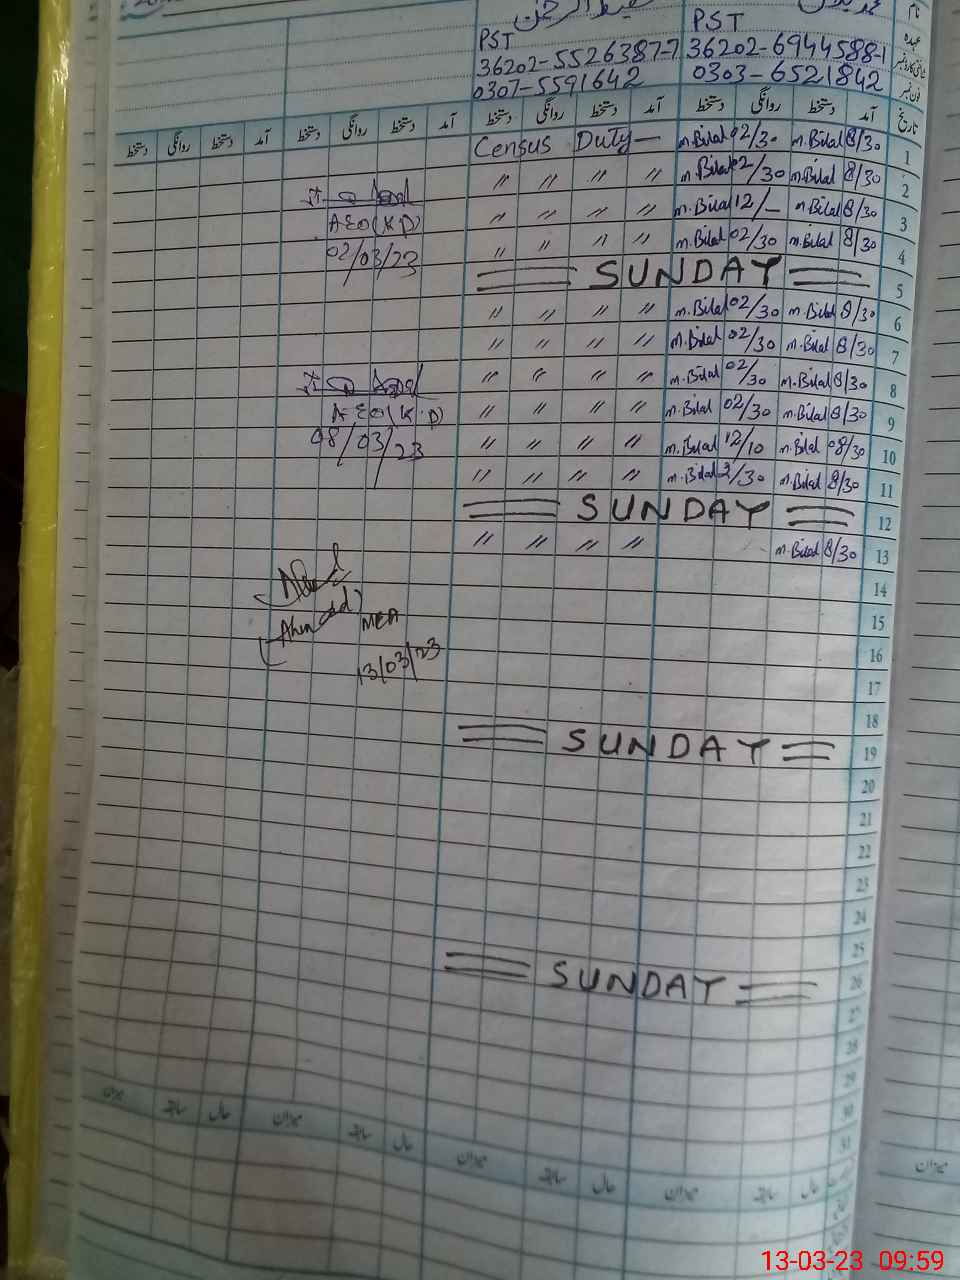 PST PST
36202-5526387-7 36202-6944588-1
0307-5591642 0303-6521842
تاریخ آمد دستخط روانگی دستخط آمد دستخط روانگی دستخط آمد دستخط روانگی دستخط آمد دستخط روانگی دستخط
Census Duty — m.Bilal 02/30 m.Bilal 8/30 1
〃 〃 〃 〃 m.Bilal 02/30 m.Bilal 8/30 2
〃 〃 〃 〃 m.Bilal 12/— m.Bilal 8/30 3
AEO(KD)
〃 〃 〃 〃 m.Bilal 02/30 m.Bilal 8/30 4
02/03/23
SUNDAY 5
〃 〃 〃 〃 m.Bilal 02/30 m.Bilal 8/30 6
〃 〃 〃 〃 m.Bilal 02/30 m.Bilal 8/30 7
〃 〃 〃 〃 m.Bilal 02/30 m.Bilal 8/30 8
AEO(K.D)
〃 〃 〃 〃 m.Bilal 02/30 m.Bilal 8/30 9
08/03/23
〃 〃 〃 〃 m.Bilal 12/10 m.Bilal 08/30 10
〃 〃 〃 〃 m.Bilal 2/30 m.Bilal 8/30 11
SUNDAY 12
〃 〃 〃 〃 m.Bilal 8/30 13
14
(Ahmad) MEA
15
13/03/23
16
17
18
SUNDAY 19
20
21
22
23
24
25
SUNDAY 26
27
28
29
30
31
میزان سابقہ حال میزان سابقہ حال میزان سابقہ حال میزان سابقہ حال
13-03-23 09:59